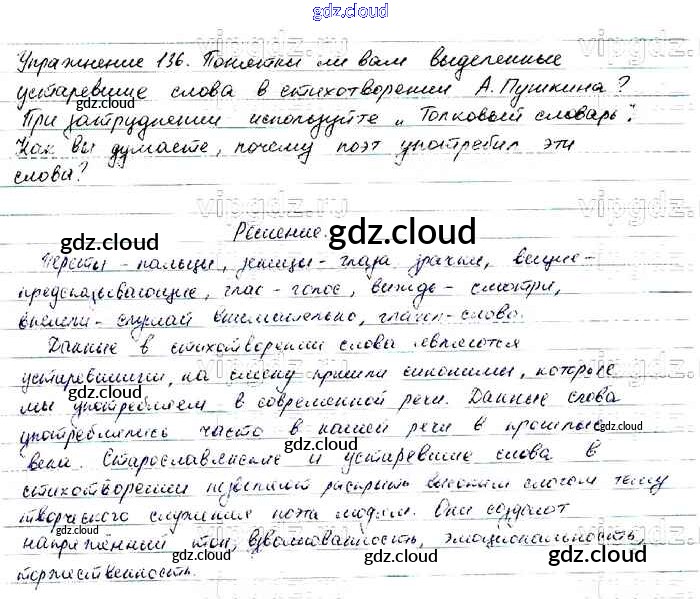 gdz.cloud
Упражнение 136. Понятны ли вам выделенные
устаревшие слова в стихотворении А. Пушкина?
gdz.cloud gdz.cloud
При затруднении используйте „Толковый словарь".
Как вы думаете, почему поэт употребил эти
слова?
vipgdz.ru vipgdz.ru
Решение.
gdz.cloud gdz.cloud
Персты - пальцы, зеницы - глаза, зрачки, вещие -
предсказывающие, глас - голос, виждь - смотри,
внемли - слушай внимательно, глагол - слово.
Данные в стихотворении слова являются
устаревшими, на смену пришли синонимы, которые
gdz.cloud gdz.cloud
мы употребляем в современной речи. Данные слова
употреблялись часто в нашей речи в прошлые
gdz.cloud
века. Старославянские и устаревшие слова в
стихотворении позволяют раскрыть высоким слогом тему
творческого служения поэта людям. Они создают
gdz.cloud
напряжённый тон, взволнованность, эмоциональность,
gdz.cloud gdz.cloud
торжественность.